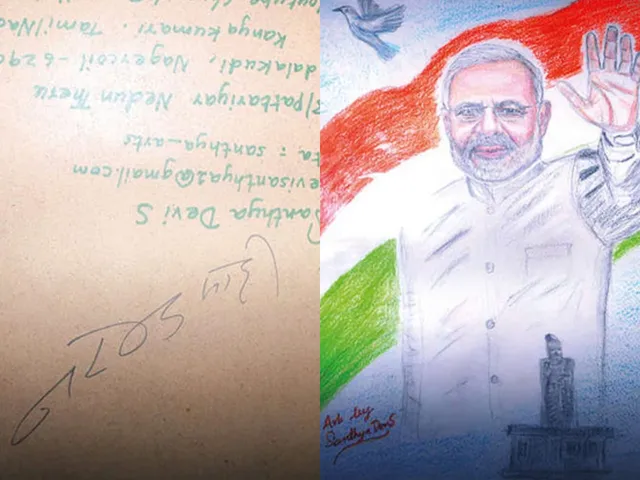 Santhya Devi S
evisanthya2@gmail.com
ta : santhya_arts
/pattariyar Nedun Theru
dalakudi, Nagercoil - 629
Kanyakumari. TamilNad
Art by
Santhya Devi S